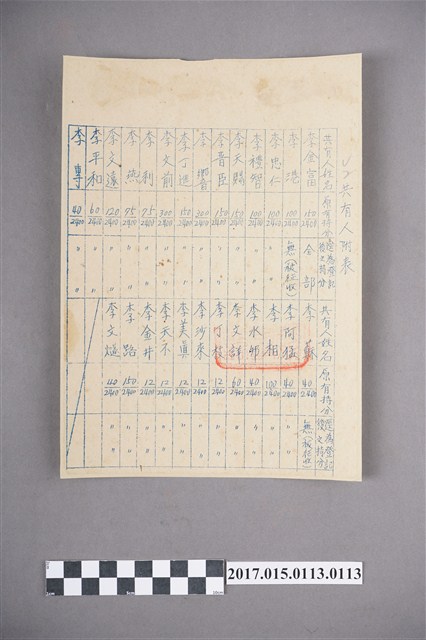 共有人附表
共有人姓名 原有持分
李金富 150/2400 全部
李港 100/2400 無(被征收)
李忠仁 100/2400 〃
李禮智 100/2400 〃
李天賜 150/2400 〃
李晋臣 150/2400 〃
李響 300/2400 〃
李丁進 150/2400 〃
李文前 300/2400 〃
李利 75/2400 〃
李燕 95/2400 〃
李文遠 120/2400 〃
李平和 60/2400 〃
李專 40/2400 〃
共有人姓名 原有持分
李蘇 40/2400 無(被征收)
李阿猛 40/2400 〃
李相 100/2400 〃
李水卿 40/2400 〃
李文詳 60/2400 〃
李丁枝 12/2400 〃
李沙來 12/2400 〃
李美真 12/2400 〃
李天不 12/2400 〃
李金井 12/2400 〃
李路 150/2400 〃
李文 110/2400 〃
2017.015.0113.0113